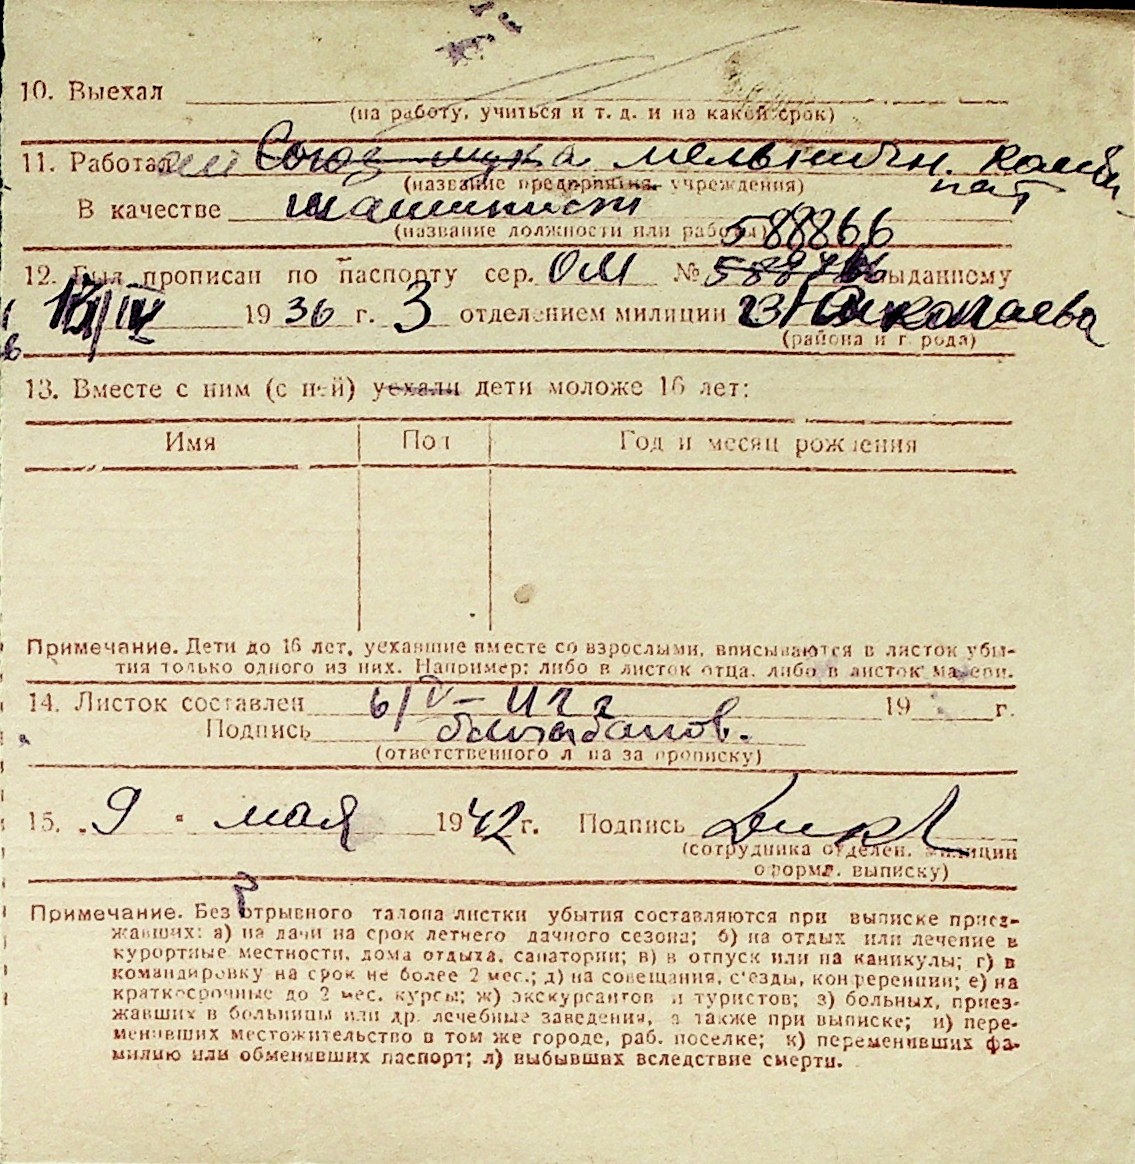 10. Выехал
(на работу, учиться и т. д. и на какой срок)
11. Работал Союз мука мельничн. комби
(название предприятия, учреждения) нат
В качестве машинист
(название должности или работы) 588866
12. Был прописан по паспорту сер. ОМ № выданному
IV 1936 г. 3 отделением милиции г. Николаева
(района и города)
13. Вместе с ним (с ней) уехали дети моложе 16 лет:
Имя Пол Год и месяц рождения
Примечание. Дети до 16 лет, уехавшие вместе со взрослыми, вписываются в листок убы-
тия только одного из них. Например: либо в листок отца, либо в листок матери.
14. Листок составлен 6/V- 19 г.
Подпись
(ответственного лица за прописку)
15. „9 " мая 1942 г. Подпись
(сотрудника отделен. милиции
оформл. выписку)
Примечание. Без отрывного талона листки убытия составляются при выписке приез-
жавших: а) на дачи на срок летнего дачного сезона; б) на отдых или лечение в
курортные местности, дома отдыха, санатории; в) в отпуск или на каникулы; г) в
командировку на срок не более 2 мес.; д) на совещания, с'езды, конференции; е) на
краткосрочные до 2 мес. курсы; ж) экскурсантов и туристов; з) больных, приез-
жавших в больницы или др. лечебные заведения, а также при выписке; и) пере-
менивших местожительство в том же городе, раб. поселке; к) переменивших фа-
милию или обменявших паспорт; л) выбывших вследствие смерти.